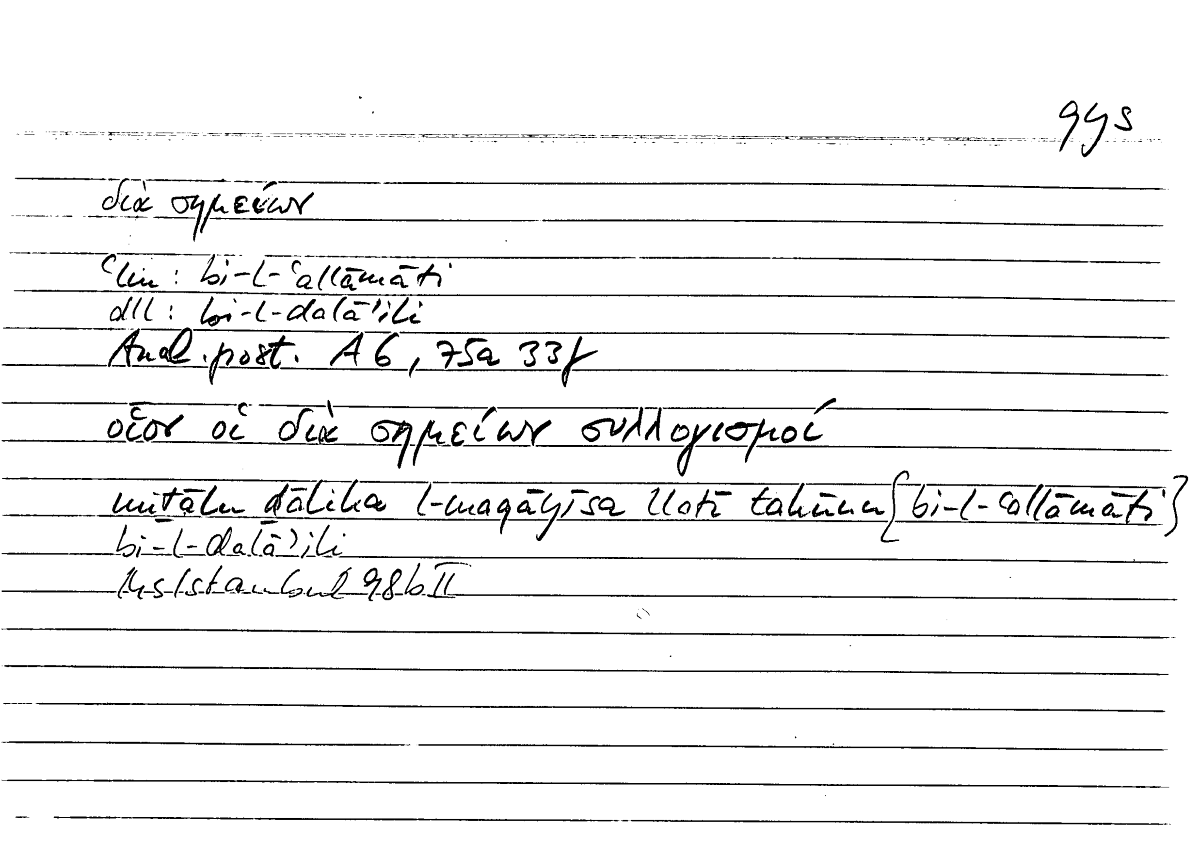 qys
διὰ σημείων
ʿlm : bi-l-ʿallāmāti
dll : bi-l-dalāʾili
Anal. post. A 6, 75a 33f
οἷον οἱ διὰ σημείων συλλογισμοί
miṯālu ḏālika l-maqāyīsa llatī takūnu {bi-l-ʿallāmāti}
bi-l-dalāʾili
Ms Istanbul 98b II